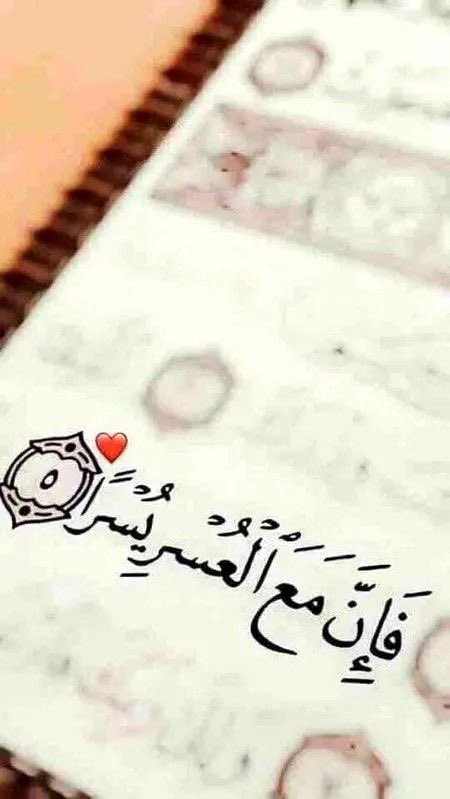 فَإِنَّ مَعَ الْعُسْرِ يُسْرًا ٥